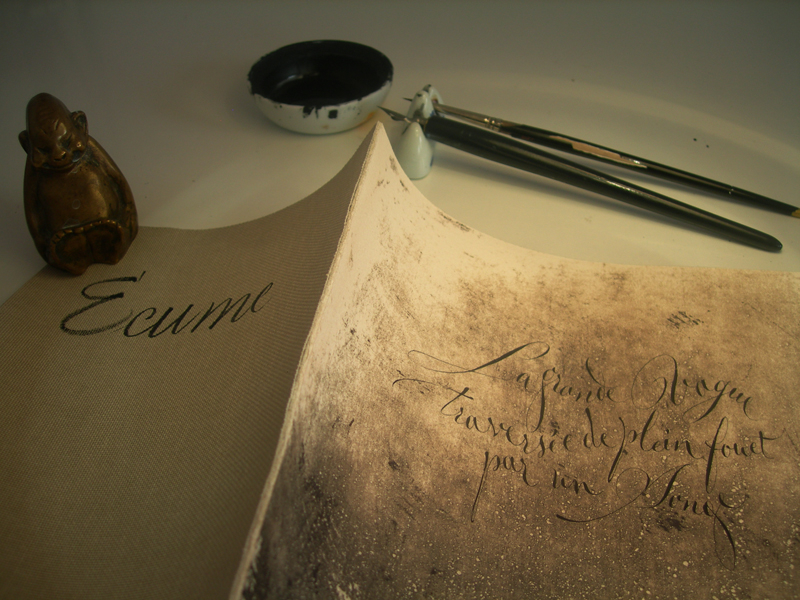 Écume
La grande Vague
traversée de plein fouet
par un